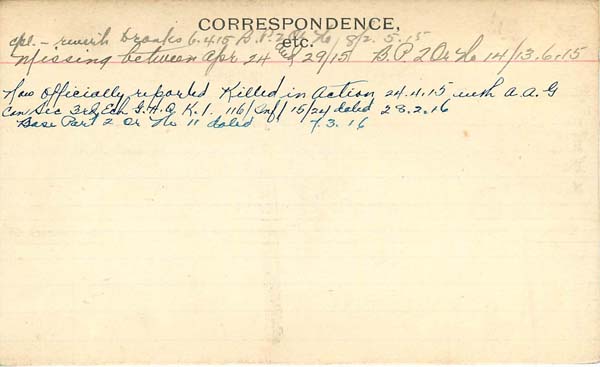 CORRESPONDENCE,
etc.
cpl. - reverts to ranks 6.4.15 B.P.2 Or No 8/2.5.15
Missing between Apr 24 And 29/15 B.P 2 Or No 14/13.6.15
Now officially reported Killed in Action 24.4.15 auth A.A.G
Can Sec 3rd Ech G.H.Q K.1. 116/Inf/15/24 dated 28.2.16
Base Part 2 Or No 11 dated 7.3.16